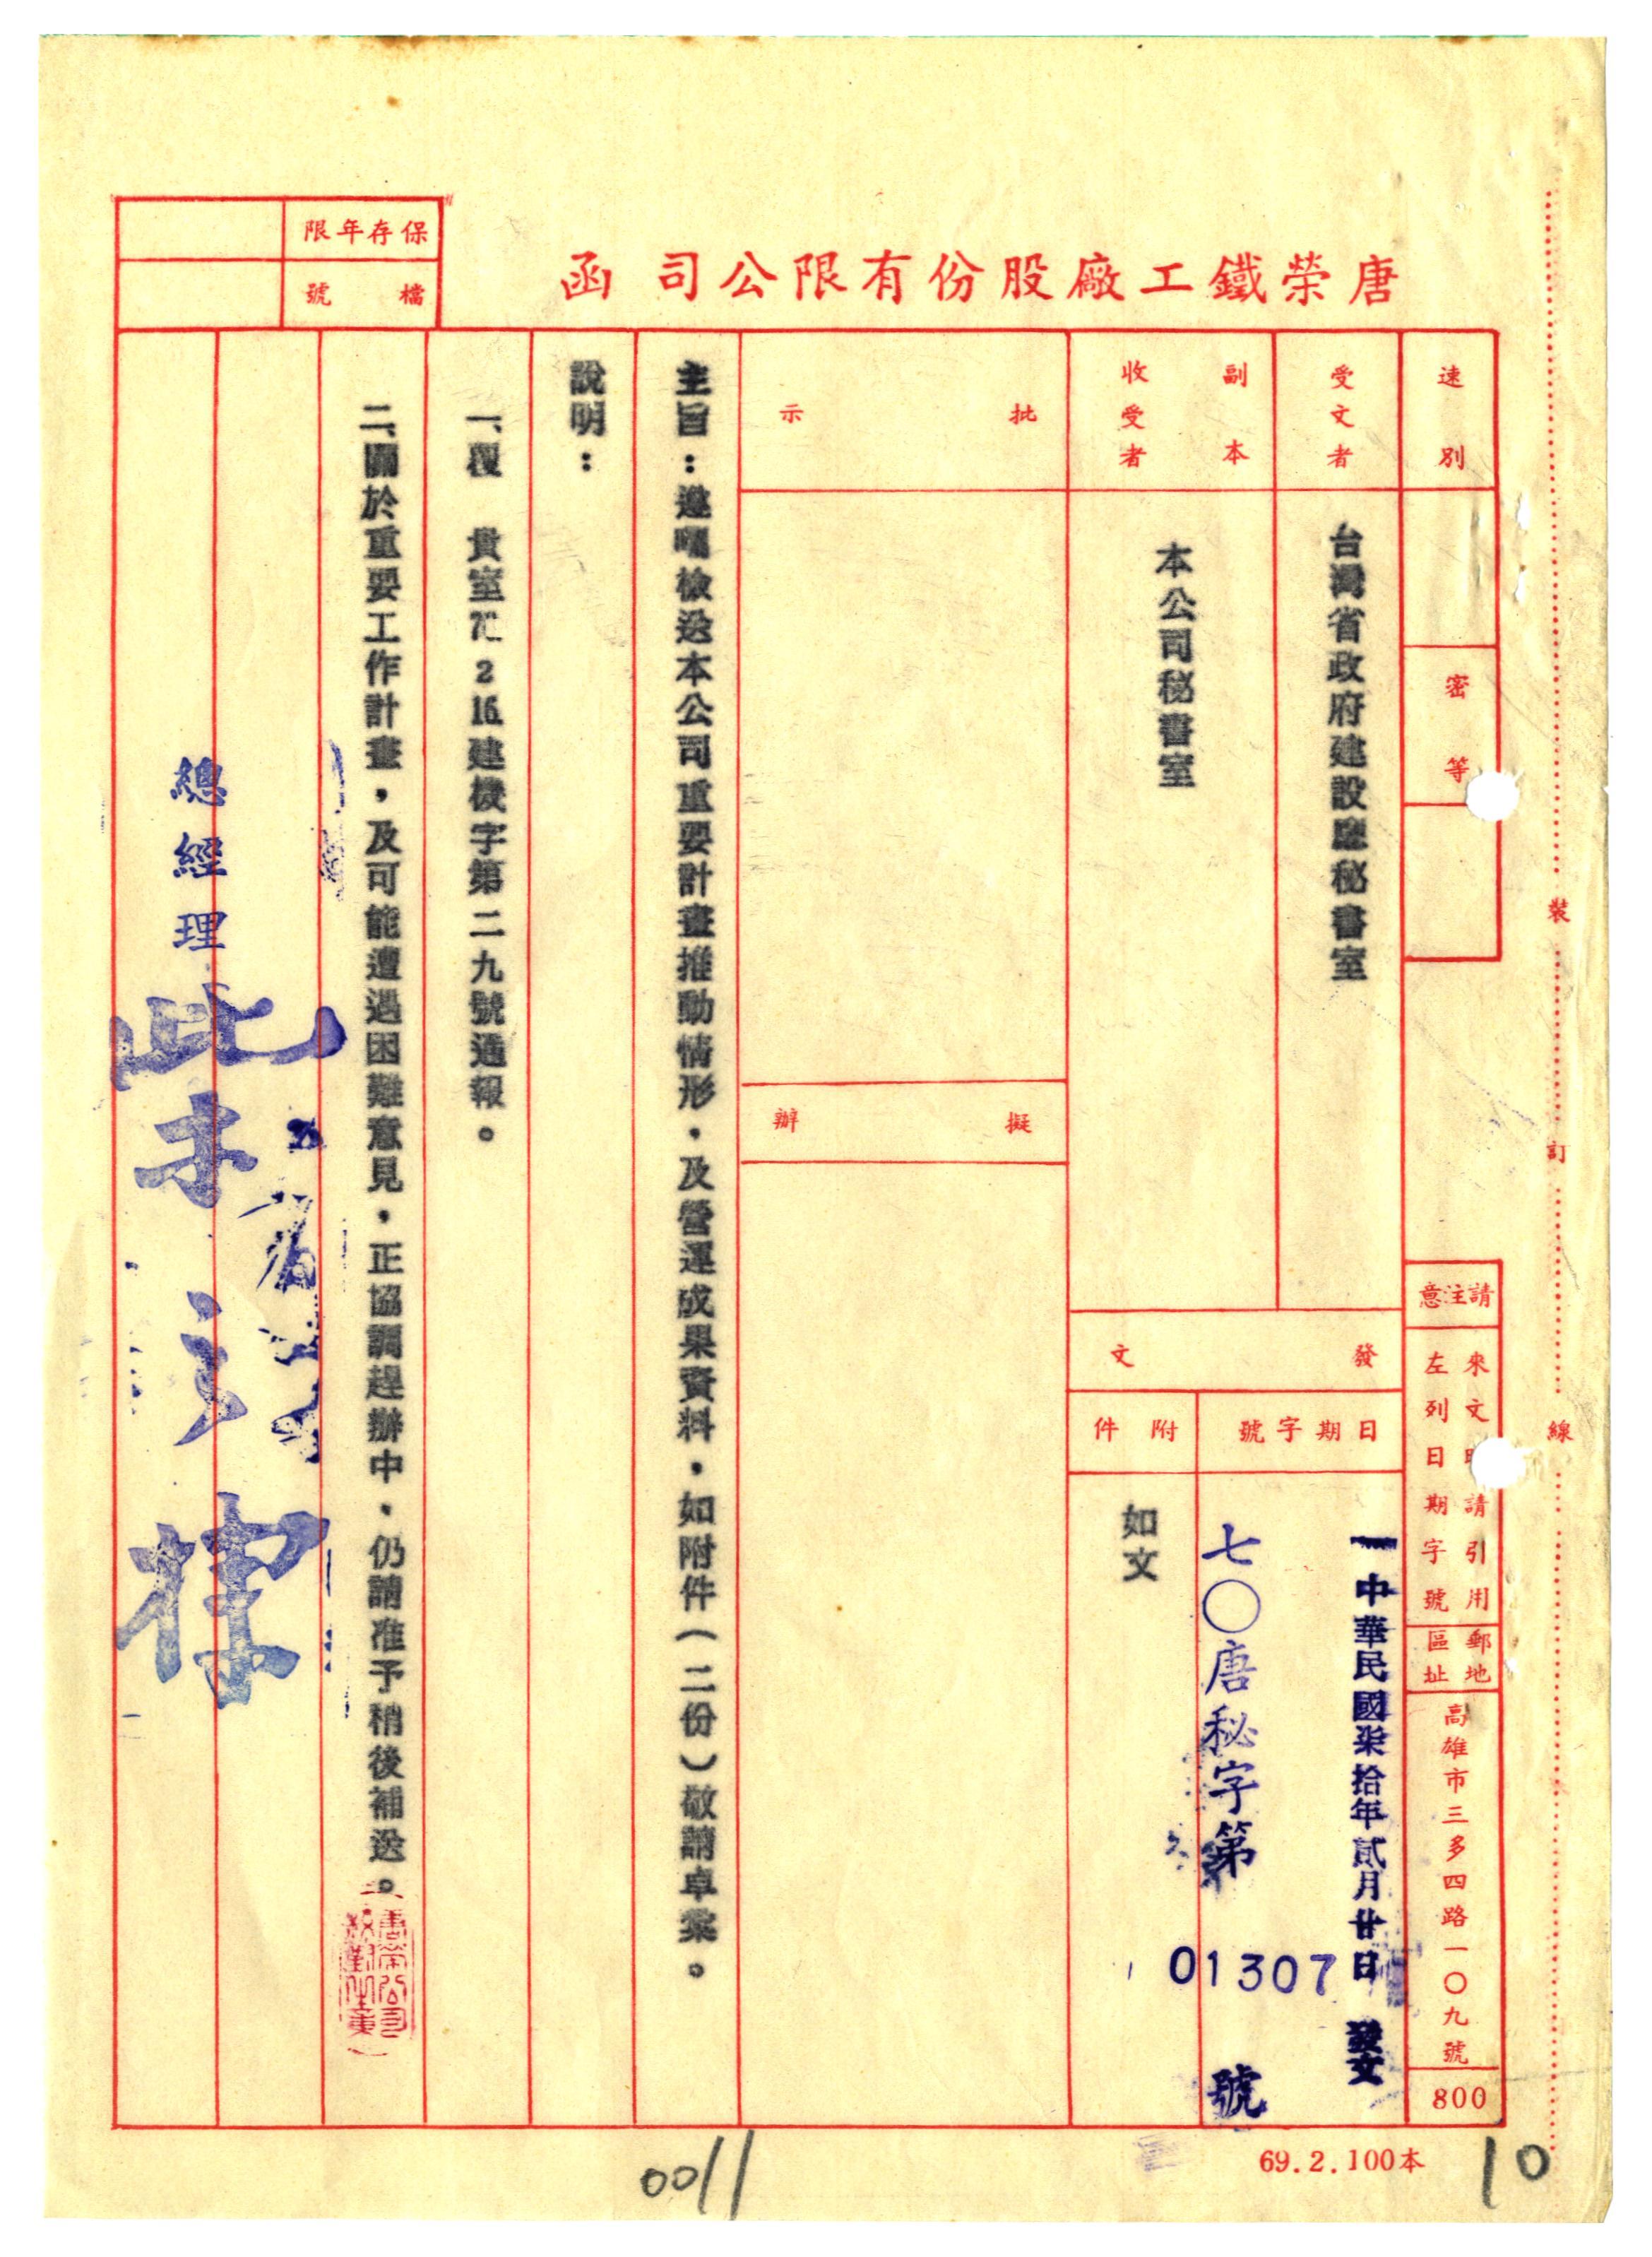 唐榮鐵工廠股份有限公司 函
保存年限
檔號
速別
密等
受文者
台灣省政府建設廳秘書室
副本收受者
本公司秘書室
批示
擬辦
發文
日期字號
附件
中華民國柒拾年貳月廿日 發文
七〇唐秘字第 01307 號
如文
請注意
來文時請引用
左列日期字號
郵區
地址
高雄市三多四路一〇九號
800
主旨：遵囑檢送本公司重要計畫推動情形，及營運成果資料，如附件（二份）敬請卓察。
說明：
一、覆 貴室70. 2 16.建機字第二九號通報。
二、關於重要工作計畫，及可能遭遇困難意見，正協調趕辦中，仍請准予稍後補送。
總經理
裝
訂
線
69.2.100本
0011
10